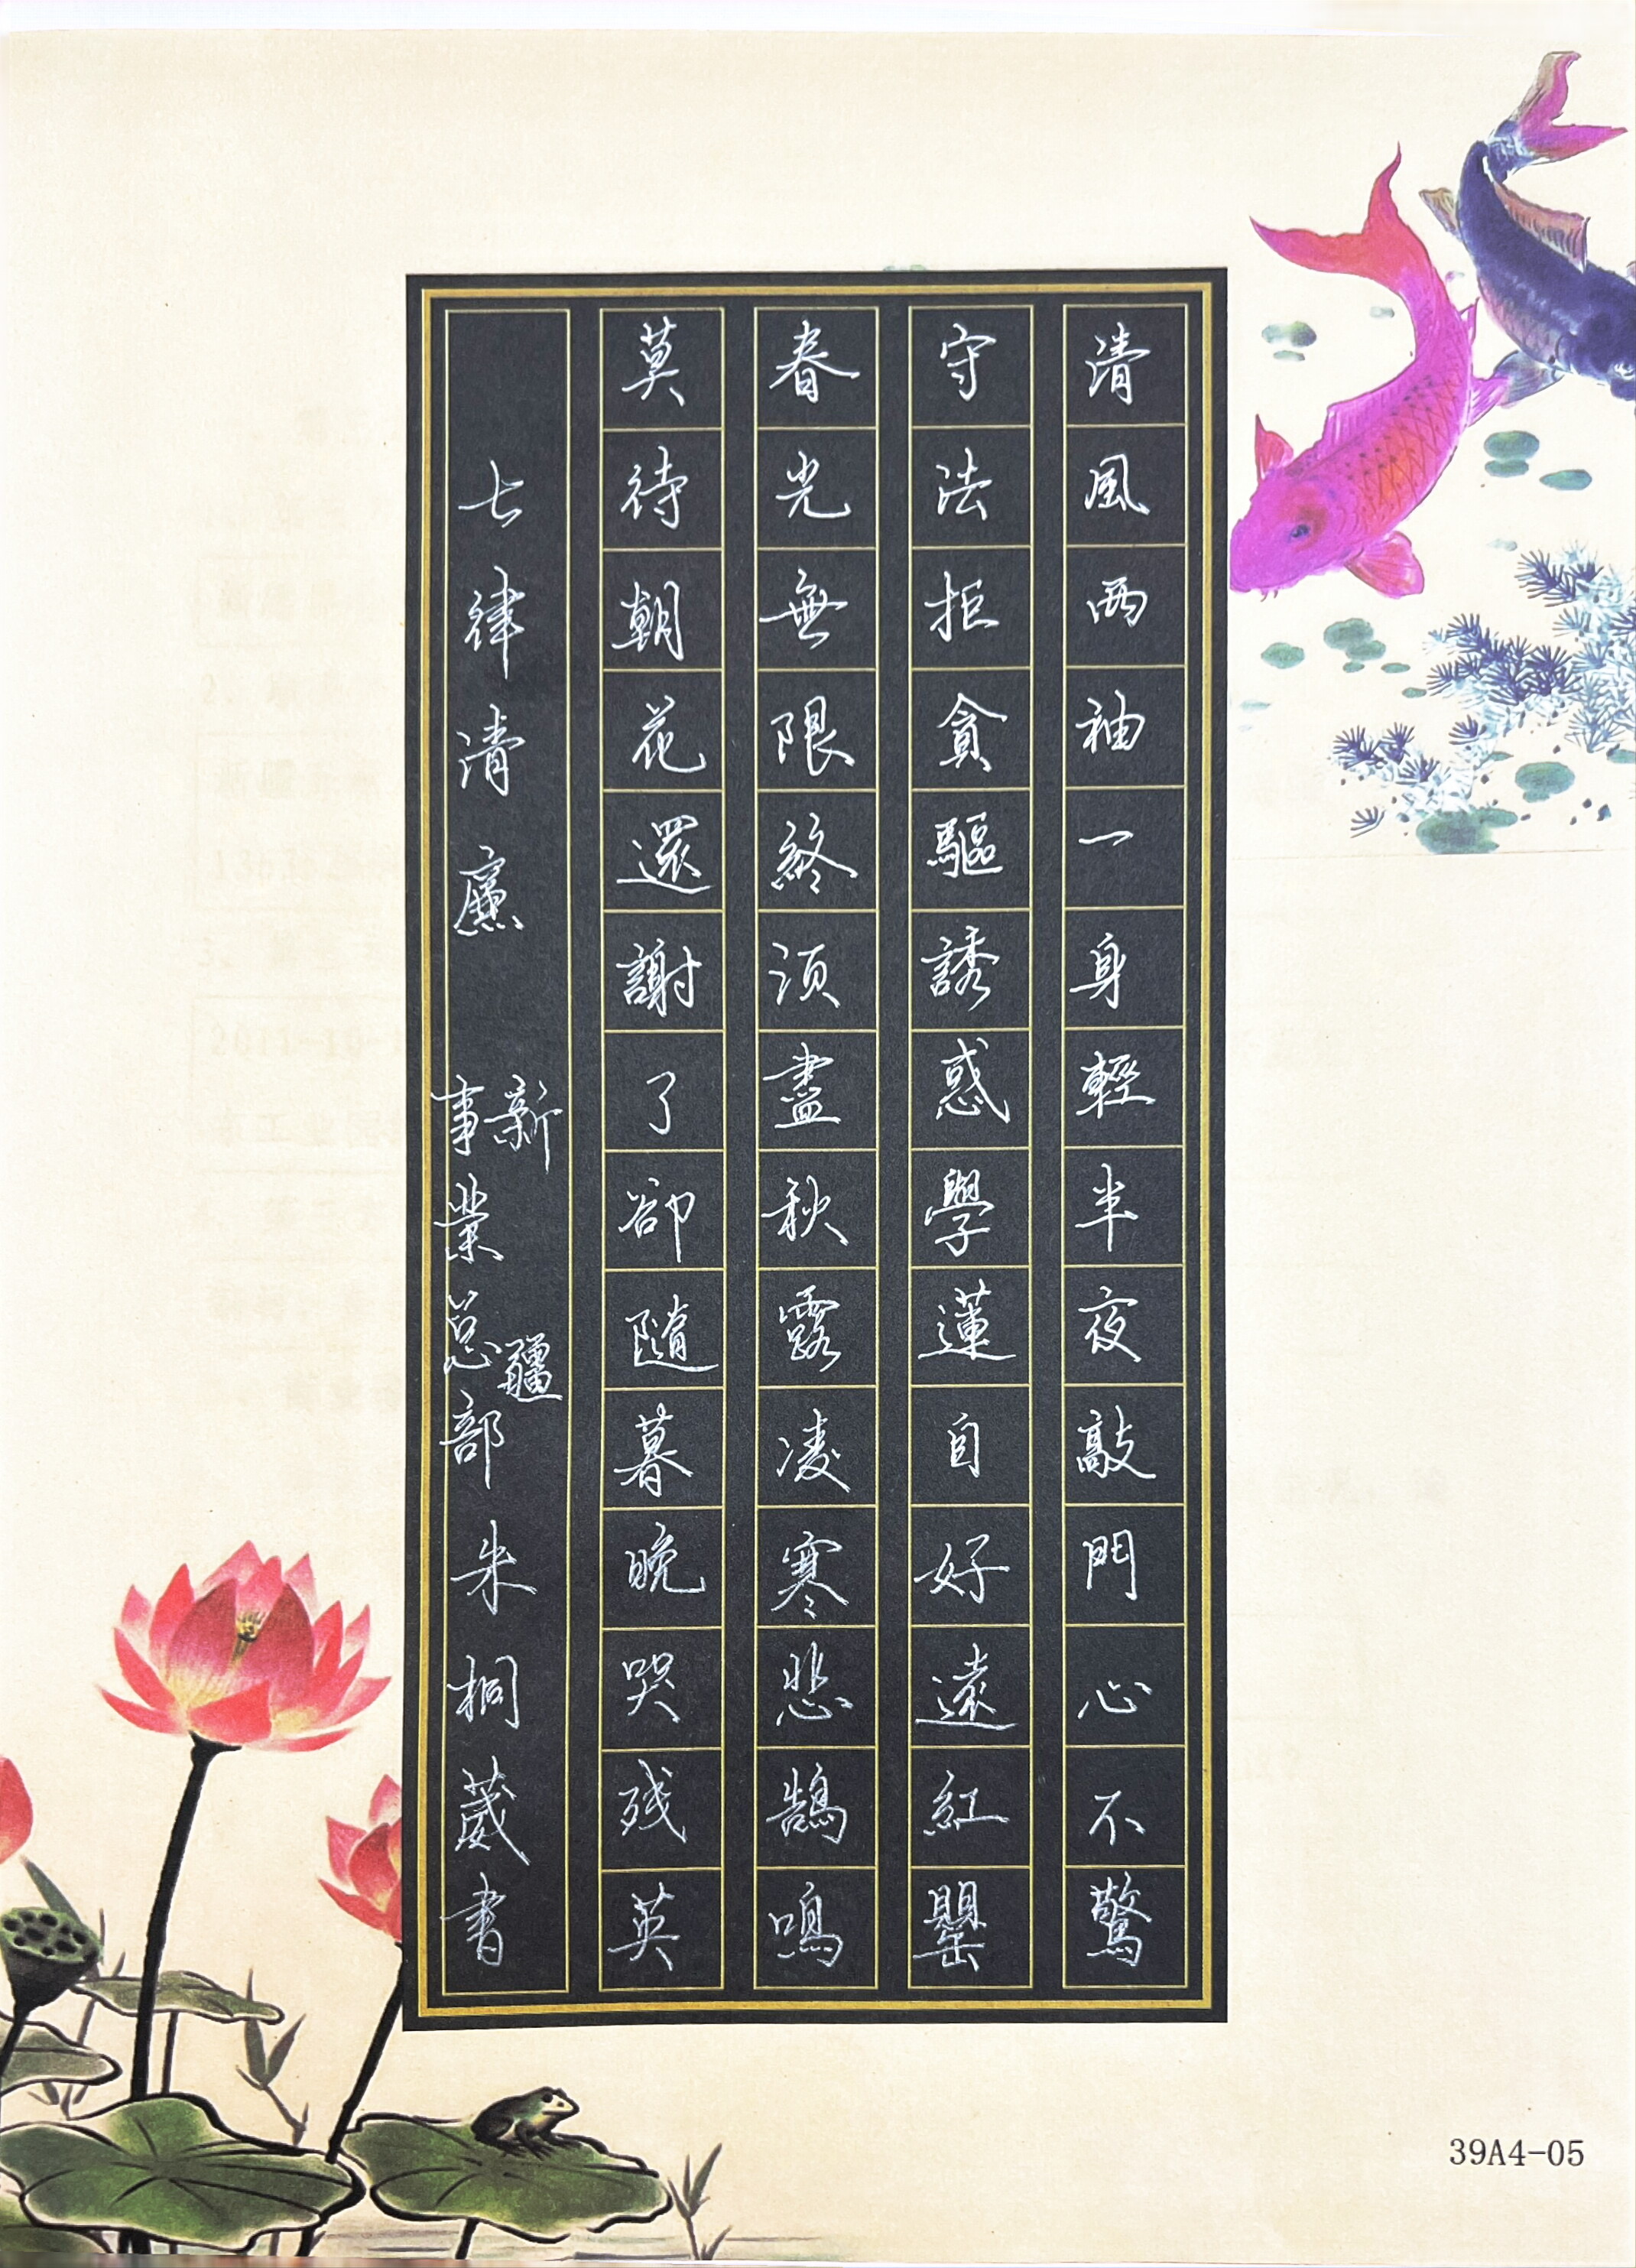 清風两袖一身輕半夜敲門心不驚
守法拒貪驅誘惑學蓮自好遠紅罌
春光無限終須盡秋露凌寒悲鵠鳴
莫待朝花還謝了卻隨暮晚哭残英
七律清廉
新疆
事業总部
朱桐葳書
39A4-05